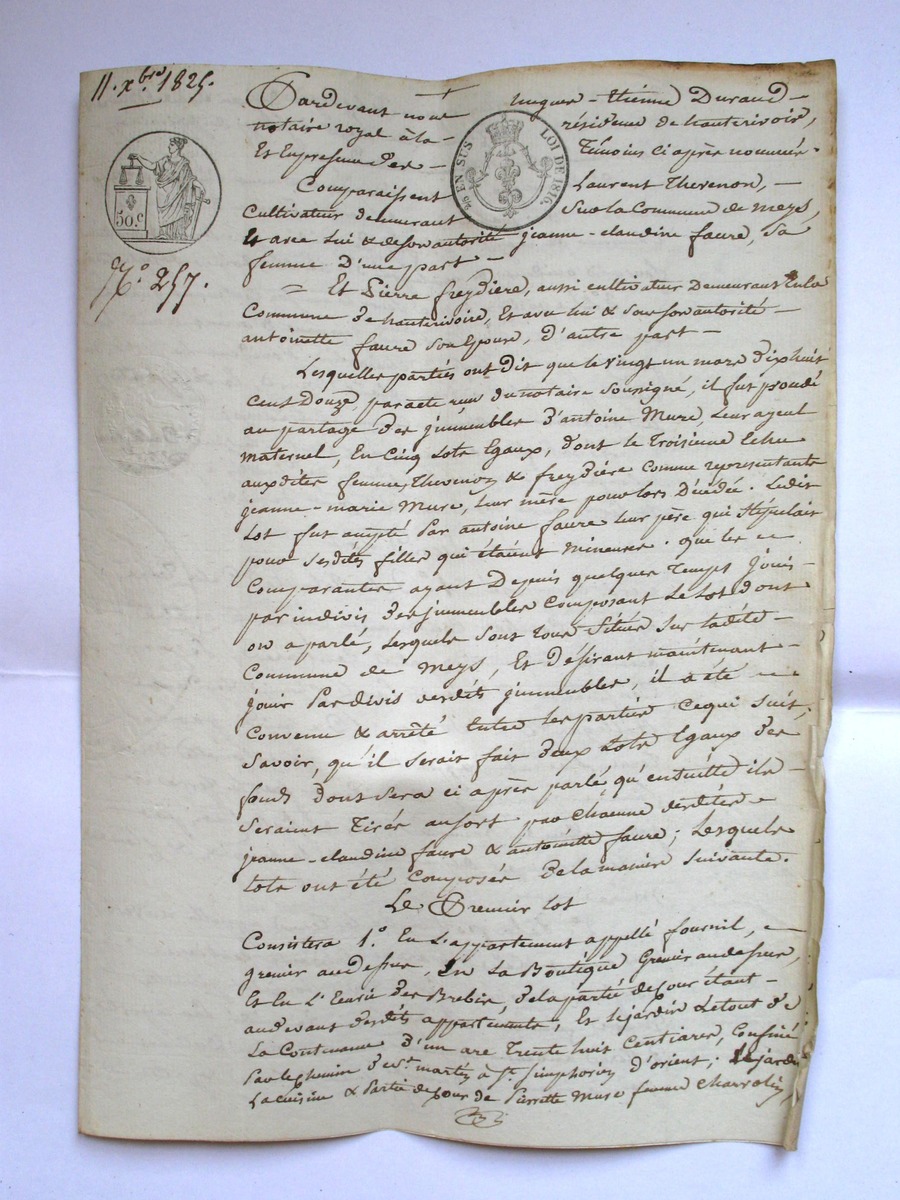 11. xbre 1825.
50.c
25 EN SUS LOI DE 1816.
N.o 257.
Pardevant nous hugues-Etienne Durand-
notaire royal à la- résidence de hauterivoire,
Et En présence Des- Témoins ci après nommés-
Comparaissent Laurent Thevenon,-
cultivateur demeurant Sur la Commune de Meys,
Et avec Lui & de son autorité jeanne-claudine faure, sa
femme D'une part-
= Et Pierre freydière, aussi cultivateur Demeurant En la
Commune De hauterivoire, Et avec lui & sous son autorité-
antoinette faure Son Epouse, D'autre part-
Lesquelles parties ont dit que le Vingt un mars Dixhuit
Cent Douze, par acte reçu du notaire soussigné, il fut procédé
au partage Des jmmeubles D'antoine Mure, Leur ayeul
maternel, En Cinq Lots Egaux, Dont le Troisième Echu
auxdites femmes Thevenon & freydière comme représentants
jeanne-marie Mure, leur mère pour lors Décédée. Ledit
Lot fut accepté Par antoine faure leur père qui Stipulait
pour Sesdites filles qui étaient mineures. que les-
Comparantes ayant Depuis quelque Temps Jouis-
par indivis Des jmmeubles Composant Le Lot Dont
on a parlé, Lesquels Sont Tous Situés Sur ladite-
Commune de Meys, Et Désirant maintenant-
jouir Par divis desdits jmmeubles, il a été-
Convenu & arrêté Entre les parties Ce qui Suit,
Savoir, qu'il Serait fait Deux Lots Egaux Des
fonds Dont Sera ci après parlé qu'ensuitte ils-
Seraient Tirés au sort par Chacune desdites-
jeanne-claudine faure & antoinette faure; Lesquels
lots ont été Composés De la manière Suivante.
Le Premier lot
Consistera 1.o En L'appartement appellé fournil,-
grenier au Dessus, En La Boutique Grenier au dessus,
Et En L'Ecurie Des Brebis, De la partie de Cour étant-
au devant Desdits appartements, Et le jardin Le tout De
La Contenance D'un are Trente huit Centiares, Confiné
Par le Chemin De st. martin à St. Simphorien D'orient; Le jardin
La cuisine & Partie de Cour de Pierrette Mure femme Charrolin,